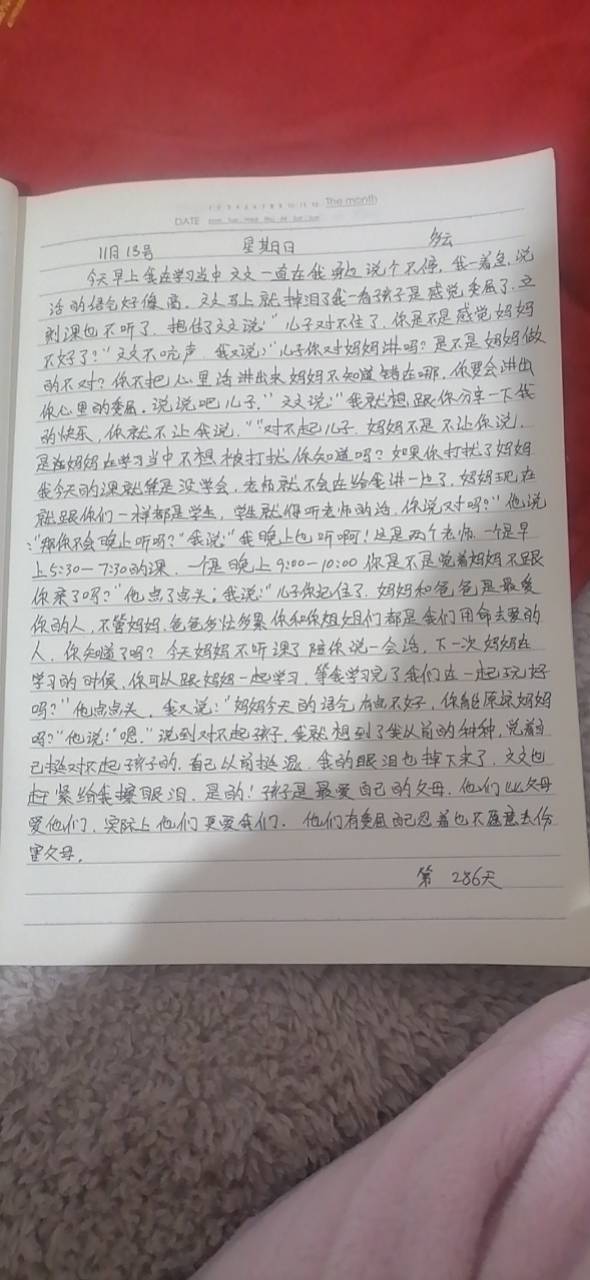 The month
DATE
11月13号 星期日 多云
今天早上我在学习当中文文一直在我旁边说个不停,我一着急,说
话的语气好像高,文文马上就掉泪了我一看孩子是感觉委屈了,立
刻课也不听了,抱住了文文说:"儿子对不住了,你是不是感觉妈妈
不好了?"文文不吭声,我又说:"儿子你对妈妈讲吗?是不是妈妈做
的不对?你不把心里话讲出来妈妈不知道错在哪,你要会讲出
你心里的委屈,说说吧儿子,"文文说:"我就想跟你分享一下我
的快乐,你就不让我说,""对不起儿子,妈妈不是不让你说,
是在妈妈在学习当中不想被打扰你知道吗?如果你打扰了妈妈
我今天的课就算是没学会,老师就不会在给我讲一边了,妈妈现在
就跟你们一样都是学生,学生就得听老师的话,你说对吗?"他说
:"那你不会晚上听吗?"我说:"我晚上也听啊!这是两个老师,一个是早
上5:30—7:30的课,一个是晚上9:00—10:00你是不是觉着妈妈不跟
你亲了吗?"他点了点头;我说:"儿子你记住了,妈妈和爸爸是最爱
你的人,不管妈妈,爸爸多忙多累你和你姐姐们都是我们用命去爱的
人,你知道了吗?今天妈妈不听课了陪你说一会话,下一次妈妈在
学习的时候,你可以跟妈妈一起学习,等我学习完了我们在一起玩好
吗?"他点点头,我又说:"妈妈今天的语气有点不好,你能原谅妈妈
吗?"他说:"嗯."说到对不起孩子,我就想到了我从前的种种,觉着自
己挺对不起孩子的,自己以前挺混,我的眼泪也掉下来了,文文也
赶紧给我擦眼泪,是的!孩子是最爱自己的父母,他们比父母
爱他们,实际上他们更爱我们.他们有委屈自己忍着也不愿意去伤
害父母.
第 286天